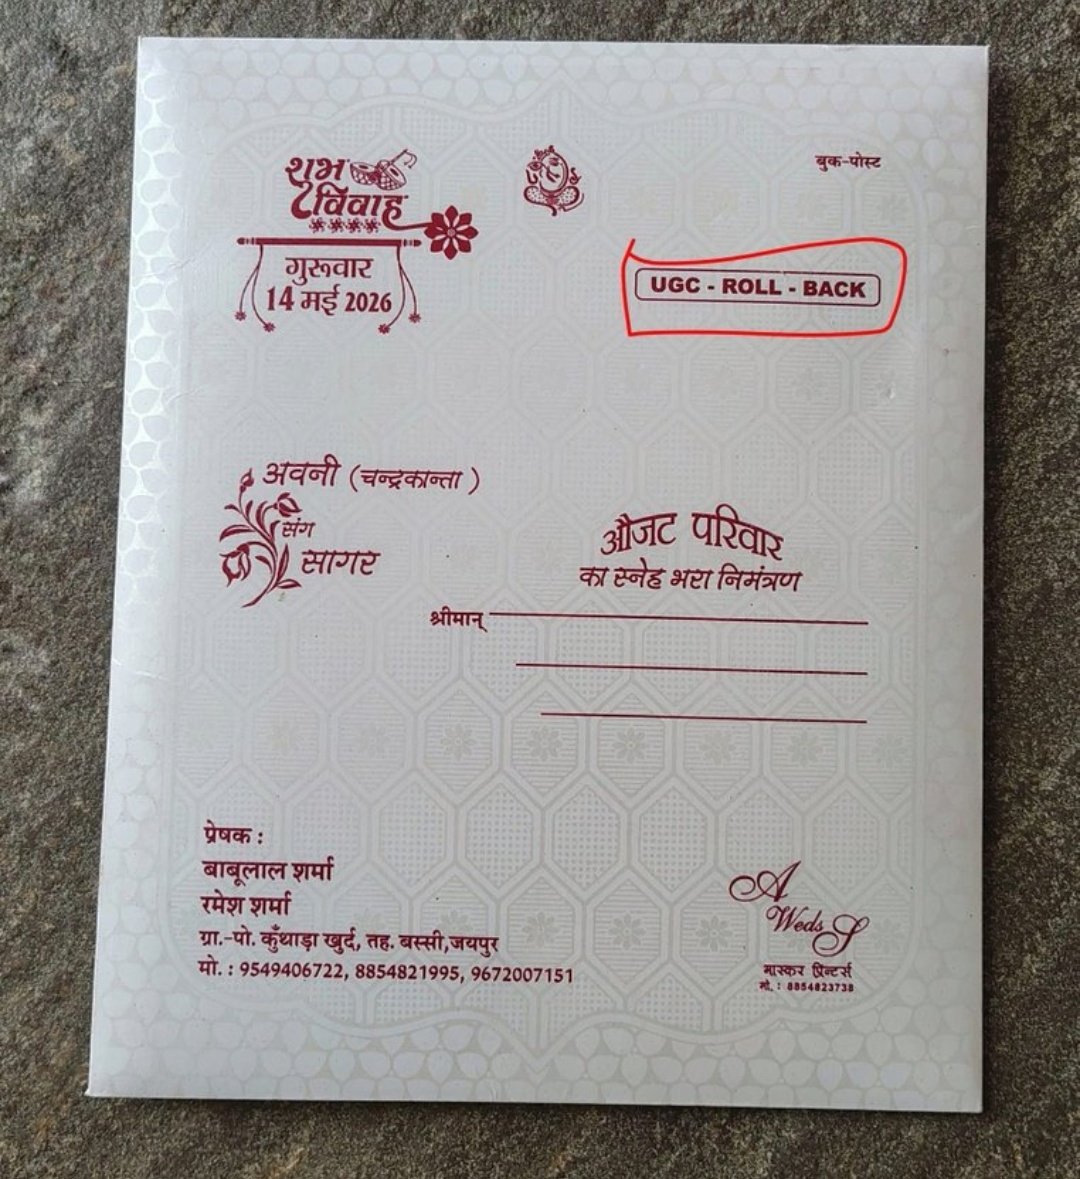 शुभ
विवाह
गुरूवार
14 मई 2026
बुक-पोस्ट
UGC - ROLL - BACK
अवनी (चन्द्रकान्ता)
संग
सागर
औजट परिवार
का स्नेह भरा निमंत्रण
श्रीमान्
प्रेषक :
बाबूलाल शर्मा
रमेश शर्मा
ग्रा.-पो. कुँथाड़ा खुर्द, तह. बस्सी,जयपुर
मो. : 9549406722, 8854821995, 9672007151
A
Weds S
मास्कर प्रिन्टर्स
मो. : 8854823738